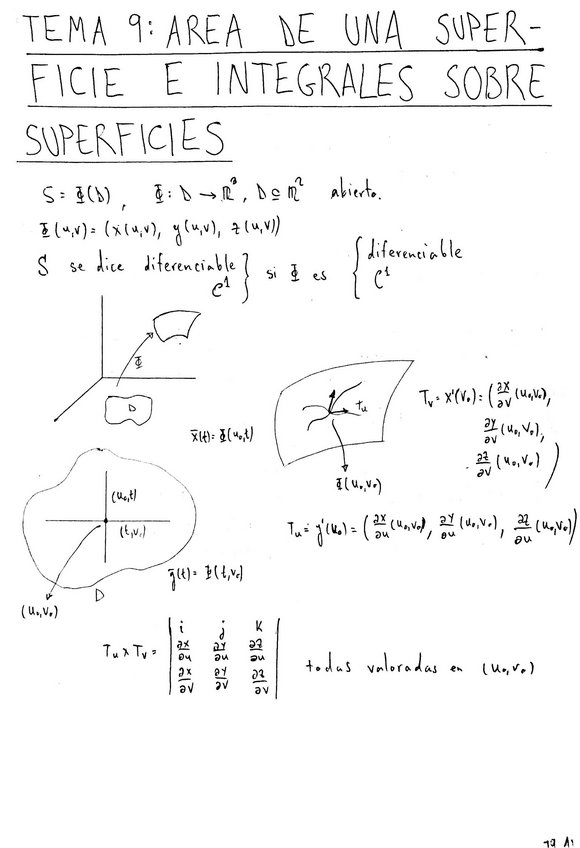 TEMA 9: AREA DE UNA SUPER-
FICIE E INTEGRALES SOBRE
SUPERFICIES
S = Φ(D), Φ: D → ℝ³, D ⊆ ℝ² abierto.
Φ(u,v) = (x(u,v), y(u,v), z(u,v))
S se dice diferenciable } si Φ es { diferenciable
C¹ C¹
Φ
D
x̄(t) = Φ(u₀,t)
Tu
Φ(u₀,v₀)
Tv = x'(v₀) = (∂x/∂v (u₀,v₀),
∂y/∂v (u₀,v₀),
∂z/∂v (u₀,v₀))
(u₀,t)
(t,v₀)
(u₀,v₀)
D
ȳ(t) = Φ(t,v₀)
Tu = y'(u₀) = (∂x/∂u (u₀,v₀), ∂y/∂u (u₀,v₀), ∂z/∂u (u₀,v₀))
Tu x Tv = | i j k |
| ∂x/∂u ∂y/∂u ∂z/∂u |
| ∂x/∂v ∂y/∂v ∂z/∂v |
todas valoradas en (u₀,v₀)